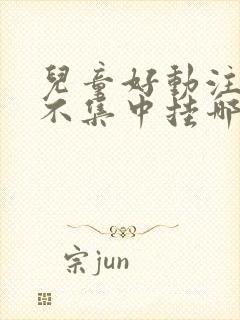 兒童好動注
不集中挂哪
宗jun